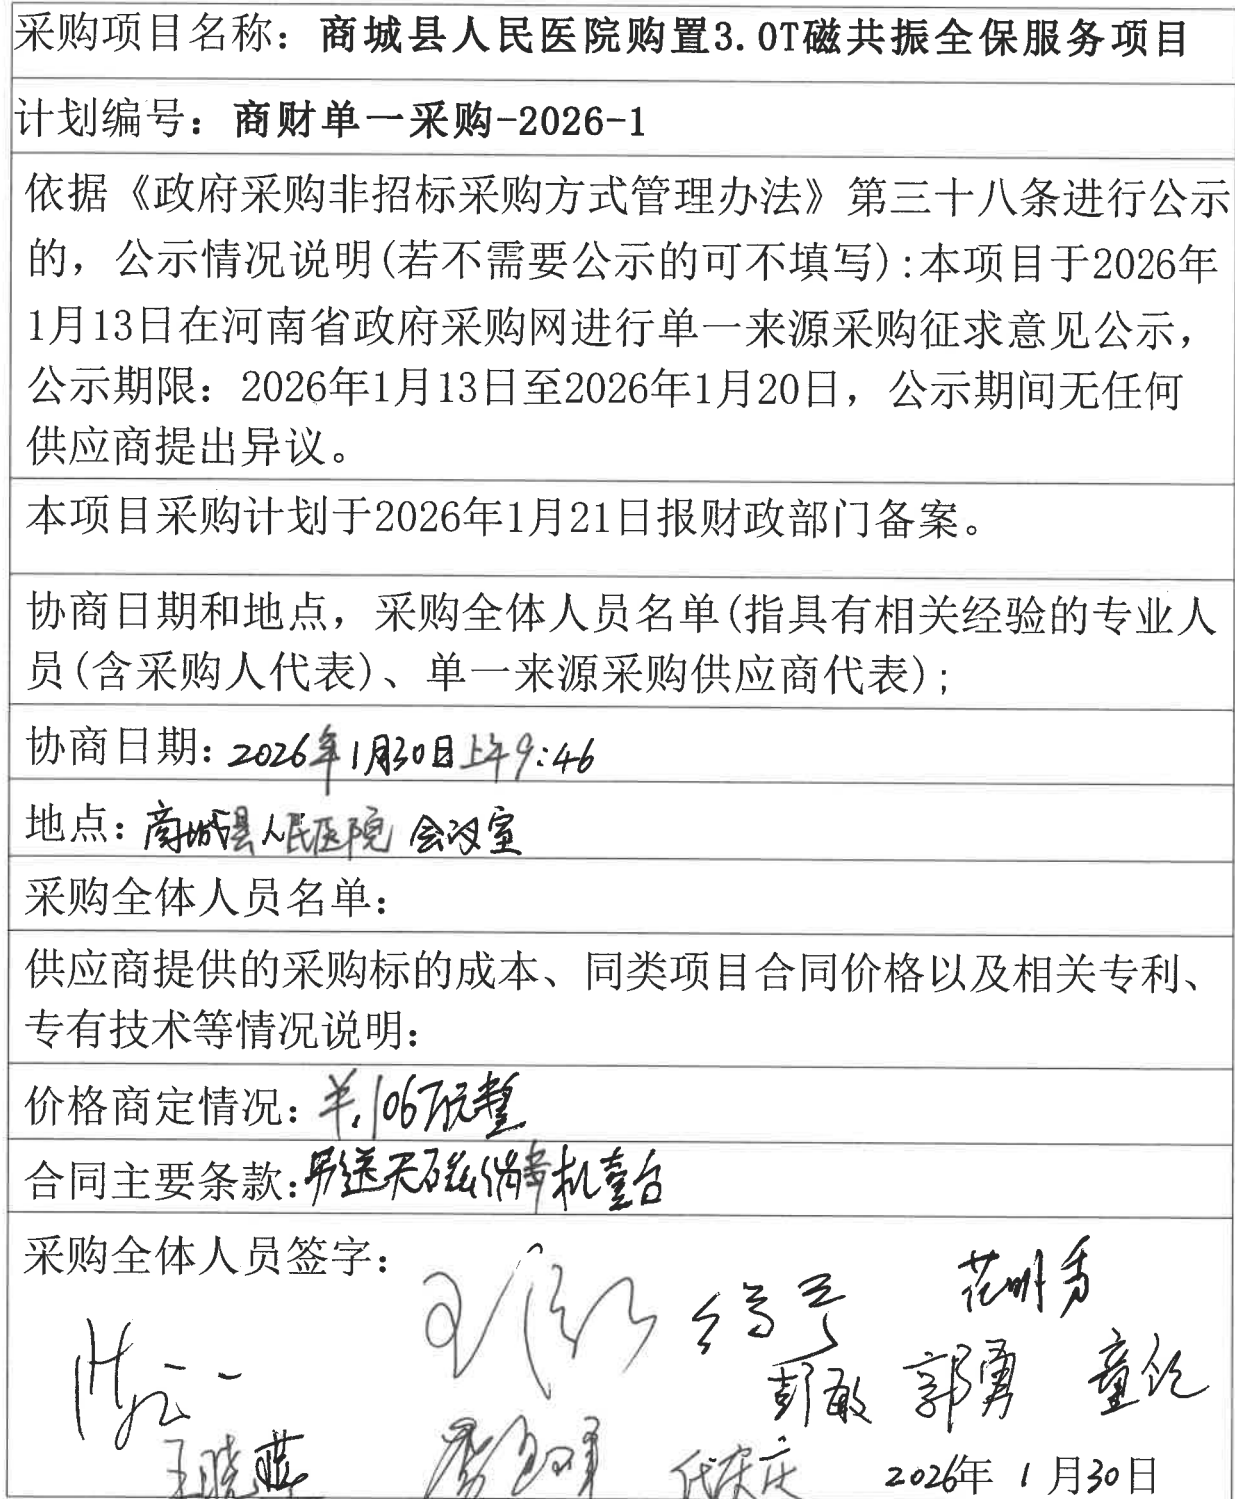 采购项目名称：商城县人民医院购置3.0T磁共振全保服务项目
计划编号：商财单一采购-2026-1
依据《政府采购非招标采购方式管理办法》第三十八条进行公示
的，公示情况说明(若不需要公示的可不填写):本项目于2026年
1月13日在河南省政府采购网进行单一来源采购征求意见公示，
公示期限：2026年1月13日至2026年1月20日，公示期间无任何
供应商提出异议。
本项目采购计划于2026年1月21日报财政部门备案。
协商日期和地点，采购全体人员名单(指具有相关经验的专业人
员(含采购人代表)、单一来源采购供应商代表);
协商日期：2026年1月30日上午9:46
地点：商城县人民医院 会议室
采购全体人员名单：
供应商提供的采购标的成本、同类项目合同价格以及相关专利、
专有技术等情况说明：
价格商定情况：¥.106万元整
合同主要条款：另送无磁 机壹台
采购全体人员签字：
花明秀
彭敏 郭勇
王晓燕 代庆庆
2026年1月30日